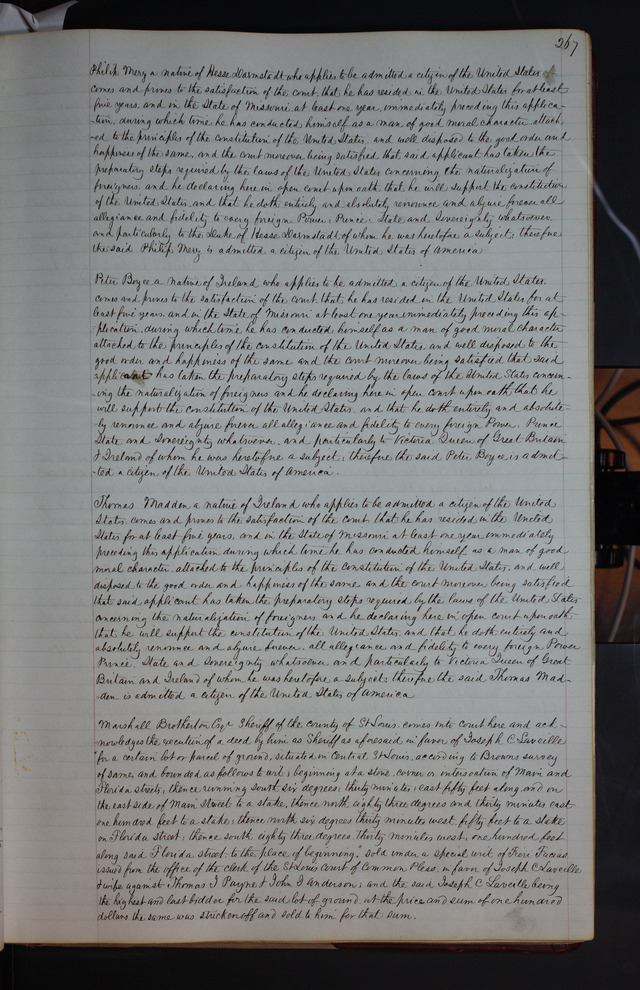 267
Philip Merz a native of Hesse Darmstadt who applies to be admitted a citizen of the United States
comes and proves to the satisfaction of the court, that he has resided in the United States for at least
five years, and in the State of Missouri at least one year, immediately preceding this applica-
tion, during which time he has conducted himself as a man of good moral character, attach-
ed to the principles of the constitution of the United States, and well disposed to the good order and
happiness of the same, and the court moreover being satisfied that said applicant has taken the
preparatory steps required by the laws of the United States concerning the naturalization of
foreigners, and he declaring here in open court upon oath, that he will support the constitution
of the United States, and that he doth entirely and absolutely renounce and abjure forever all
allegiance and fidelity to every foreign Power, Prince, State and Sovereignty whatsoever
and particularly to the Duke of Hesse Darmstadt of whom he was heretofore a subject; therefore
the said Philip Merz is admitted a citizen of the United States of America
Peter Boyce a native of Ireland who applies to be admitted a citizen of the United States
comes and proves to the satisfaction of the court that he has resided in the United States for at
least five years, and in the State of Missouri at least one year immediately preceding this ap-
plication, during which time he has conducted himself as a man of good moral character
attached to the principles of the constitution of the United States, and well disposed to the
good order and happiness of the same and the court moreover being satisfied that said
applicant has taken the preparatory steps required by the laws of the United States concern-
ing the naturalization of foreigners and he declaring here in open court upon oath, that he
will support the constitution of the United States, and that he doth entirely and absolute-
ly renounce and abjure forever all allegiance and fidelity to every foreign Power, Prince
State and Sovereignty whatsoever, and particularly to Victoria Queen of Great Britain
& Ireland of whom he was heretofore a subject; therefore the said Peter Boyce is admit-
ted a citizen of the United States of America.
Thomas Madden a native of Ireland who applies to be admitted a citizen of the United
States, comes and proves to the satisfaction of the court that he has resided in the United
States for at least five years, and in the State of Missouri at least one year immediately
preceding this application during which time he has conducted himself as a man of good
moral character, attached to the principles of the constitution of the United States, and well
disposed to the good order and happiness of the same and the court moreover being satisfied
that said applicant has taken the preparatory steps required by the laws of the United States
concerning the naturalization of foreigners and he declaring here in open court upon oath
that he will support the constitution of the United States, and that he doth entirely and
absolutely renounce and abjure forever all allegiance and fidelity to every foreign Power
Prince State and Sovereignty whatsoever and particularly to Victoria Queen of Great
Britain and Ireland of whom he was heretofore a subject; therefore the said Thomas Mad-
den is admitted a citizen of the United States of America
Marshall Brotherton Esqr Sheriff of the county of St Louis, comes into court here and ack-
nowledges the execution of a deed by him as Sheriff as aforesaid in favor of Joseph C Laveille
"for a certain lot or parcel of ground, situated in Central St Louis, according to Browns survey
of same, and bounded as follows to wit; beginning at a stone, corner or intersection of Main and
Florida streets; thence running south six degrees, thirty minutes, east fifty feet along and on
the east side of Main street to a stake, thence north eighty three degrees and thirty minutes east
one hundred feet to a stake; thence north six degrees thirty minutes west, fifty feet to a stake
on Florida street; thence south eighty three degrees, thirty minutes west, one hundred feet
along said Florida street to the place of beginning," sold under a special writ of Fieri Facias
issued from the office of the clerk of the St Louis Court of Common Pleas in favor of Joseph C Laveille
& wife against Thomas J Payne & John J Anderson; and the said Joseph C Laveille being
the highest and last bidder for the said lot of ground, at the price and sum of one hundred
dollars the same was stricken off and sold to him for that sum.